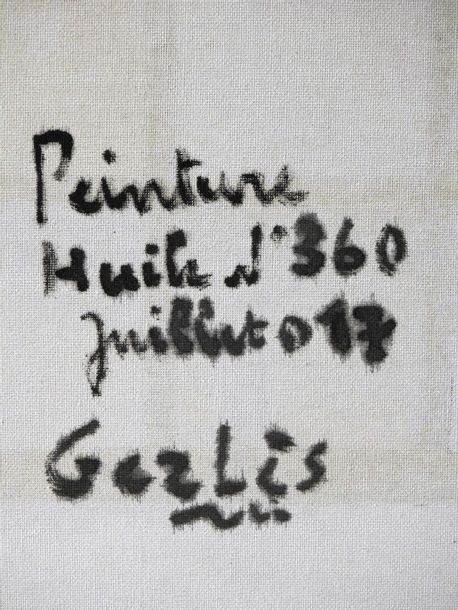 Peinture
Huile N°360
Juillet 017
GezLis